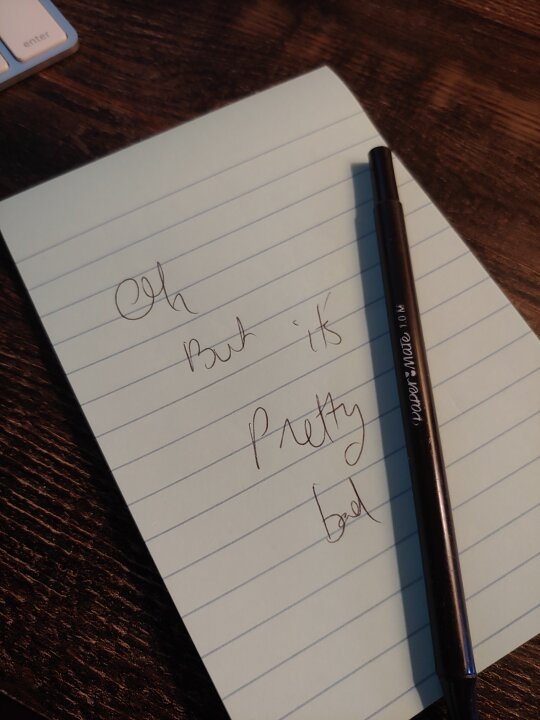 enter
Oh
But it's
Pretty
bad
PAPER MATE 1.0 M